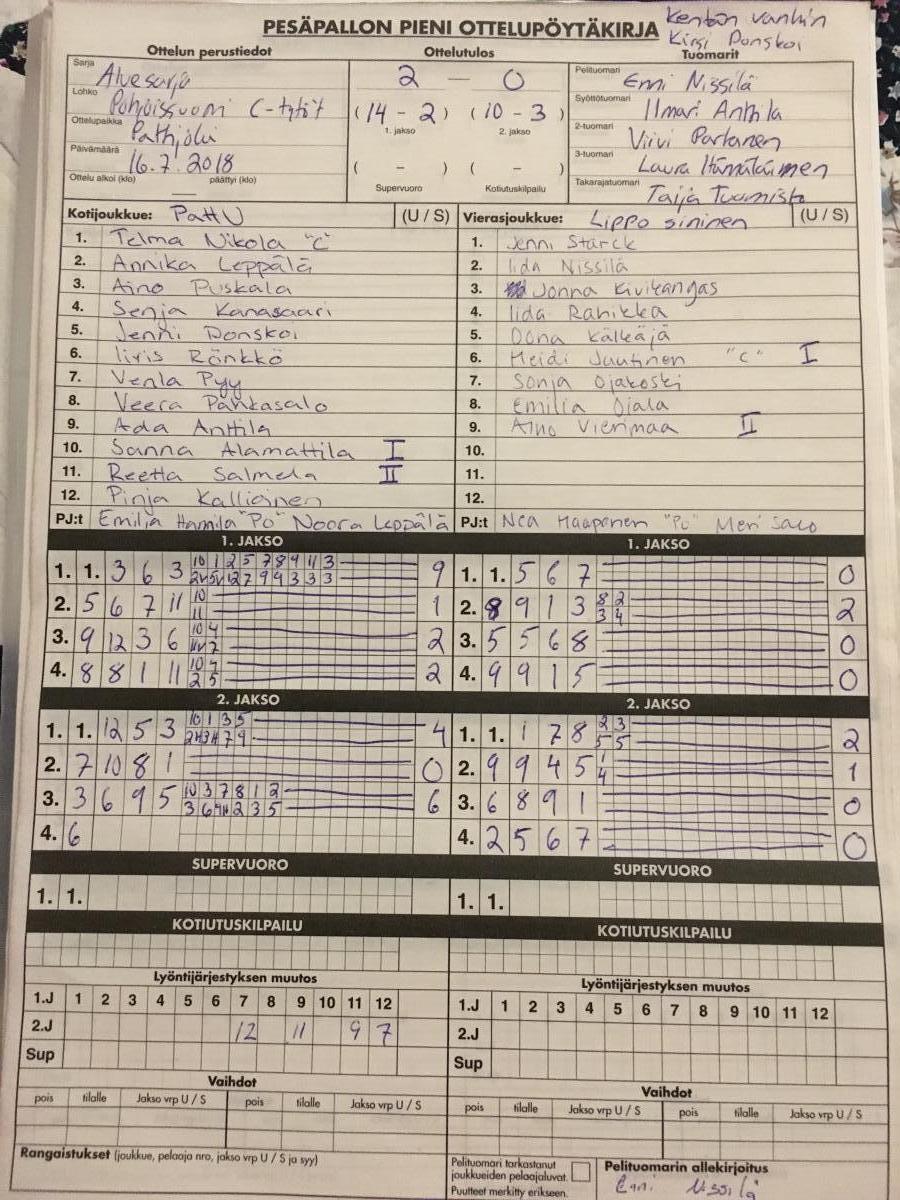 PESÄPALLON PIENI OTTELUPÖYTÄKIRJA
Kentän vanhin
Kirsi Donskoi
Ottelun perustiedot
Ottelutulos
Tuomarit
Sarja
Aluesarja
Lohko
Pohjoissuomi C-tytöt
Ottelupaikka
Pattijoki
Päivämäärä
16.7.2018
Ottelu alkoi (klo) päättyi (klo)
2 — 0
(14 - 2) (10 - 3)
1. jakso 2. jakso
( - ) ( - )
Supervuoro Kotiutuskilpailu
Pelituomari
Emi Nissilä
Syöttötuomari
Ilmari Anttila
2-tuomari
Viivi Partanen
3-tuomari
Laura Hämäläinen
Takarajatuomari
Taija Tuomisto
Kotijoukkue: PattU (U / S)
1. Telma Nikola "C"
2. Annika Leppälä
3. Aino Puskala
4. Senja Kanasaari
5. Jenni Donskoi
6. Iiris Rönkkö
7. Venla Pyy
8. Veera Pahkasalo
9. Ada Anttila
10. Sanna Alamattila I
11. Reetta Salmela II
12. Pinja Kallioinen
PJ:t Emilia "PJ" Noora Leppälä
Vierasjoukkue: Lippo sininen (U / S)
1. Jenni Starck
2. Iida Nissilä
3. Jonna Kivikangas
4. Iida Rahikka
5. Oona Kälkäjä
6. Heidi Juutinen "C" I
7. Sonja Ojakoski
8. Emilia Ojala
9. Aino Vierimaa II
10.
11.
12.
PJ:t Nea Haaponen "PJ" Meri Salo
1. JAKSO
1. 1. 3 6 3 10 1 2 5 7 8 9 11 3 9
2. 5 6 7 11 10 1
11
3. 9 12 3 6 10 4 2
4. 8 8 1 11 10 7 2
2 5
1. JAKSO
1. 1. 5 6 7 0
2. 8 9 1 3 8 2 2
3 4
3. 5 5 6 8 0
4. 9 9 1 5 0
2. JAKSO
1. 1. 12 5 3 10 1 3 5 4
2. 7 10 8 1 0
3. 3 6 9 5 10 3 7 8 1 2 6
4. 6
2. JAKSO
1. 1. 1 7 8 2 3 2
5 5
2. 9 9 4 5 1 1
4
3. 6 8 9 1 0
4. 2 5 6 7 0
SUPERVUORO
1. 1.
SUPERVUORO
1. 1.
KOTIUTUSKILPAILU
KOTIUTUSKILPAILU
Lyöntijärjestyksen muutos
1.J 1 2 3 4 5 6 7 8 9 10 11 12
2.J 12 11 9 7
Sup
Lyöntijärjestyksen muutos
1.J 1 2 3 4 5 6 7 8 9 10 11 12
2.J
Sup
Vaihdot
pois tilalle Jakso vrp U / S pois tilalle Jakso vrp U / S
Vaihdot
pois tilalle Jakso vrp U / S pois tilalle Jakso vrp U / S
Rangaistukset (joukkue, pelaaja nro, jakso vrp U / S ja syy)
Pelituomari tarkastanut
joukkueiden pelaajaluvat.
Puutteet merkitty erikseen.
Pelituomarin allekirjoitus
Emi Nissilä